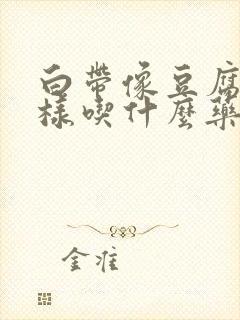 白帶像豆腐
樣喫什麼藥
金准